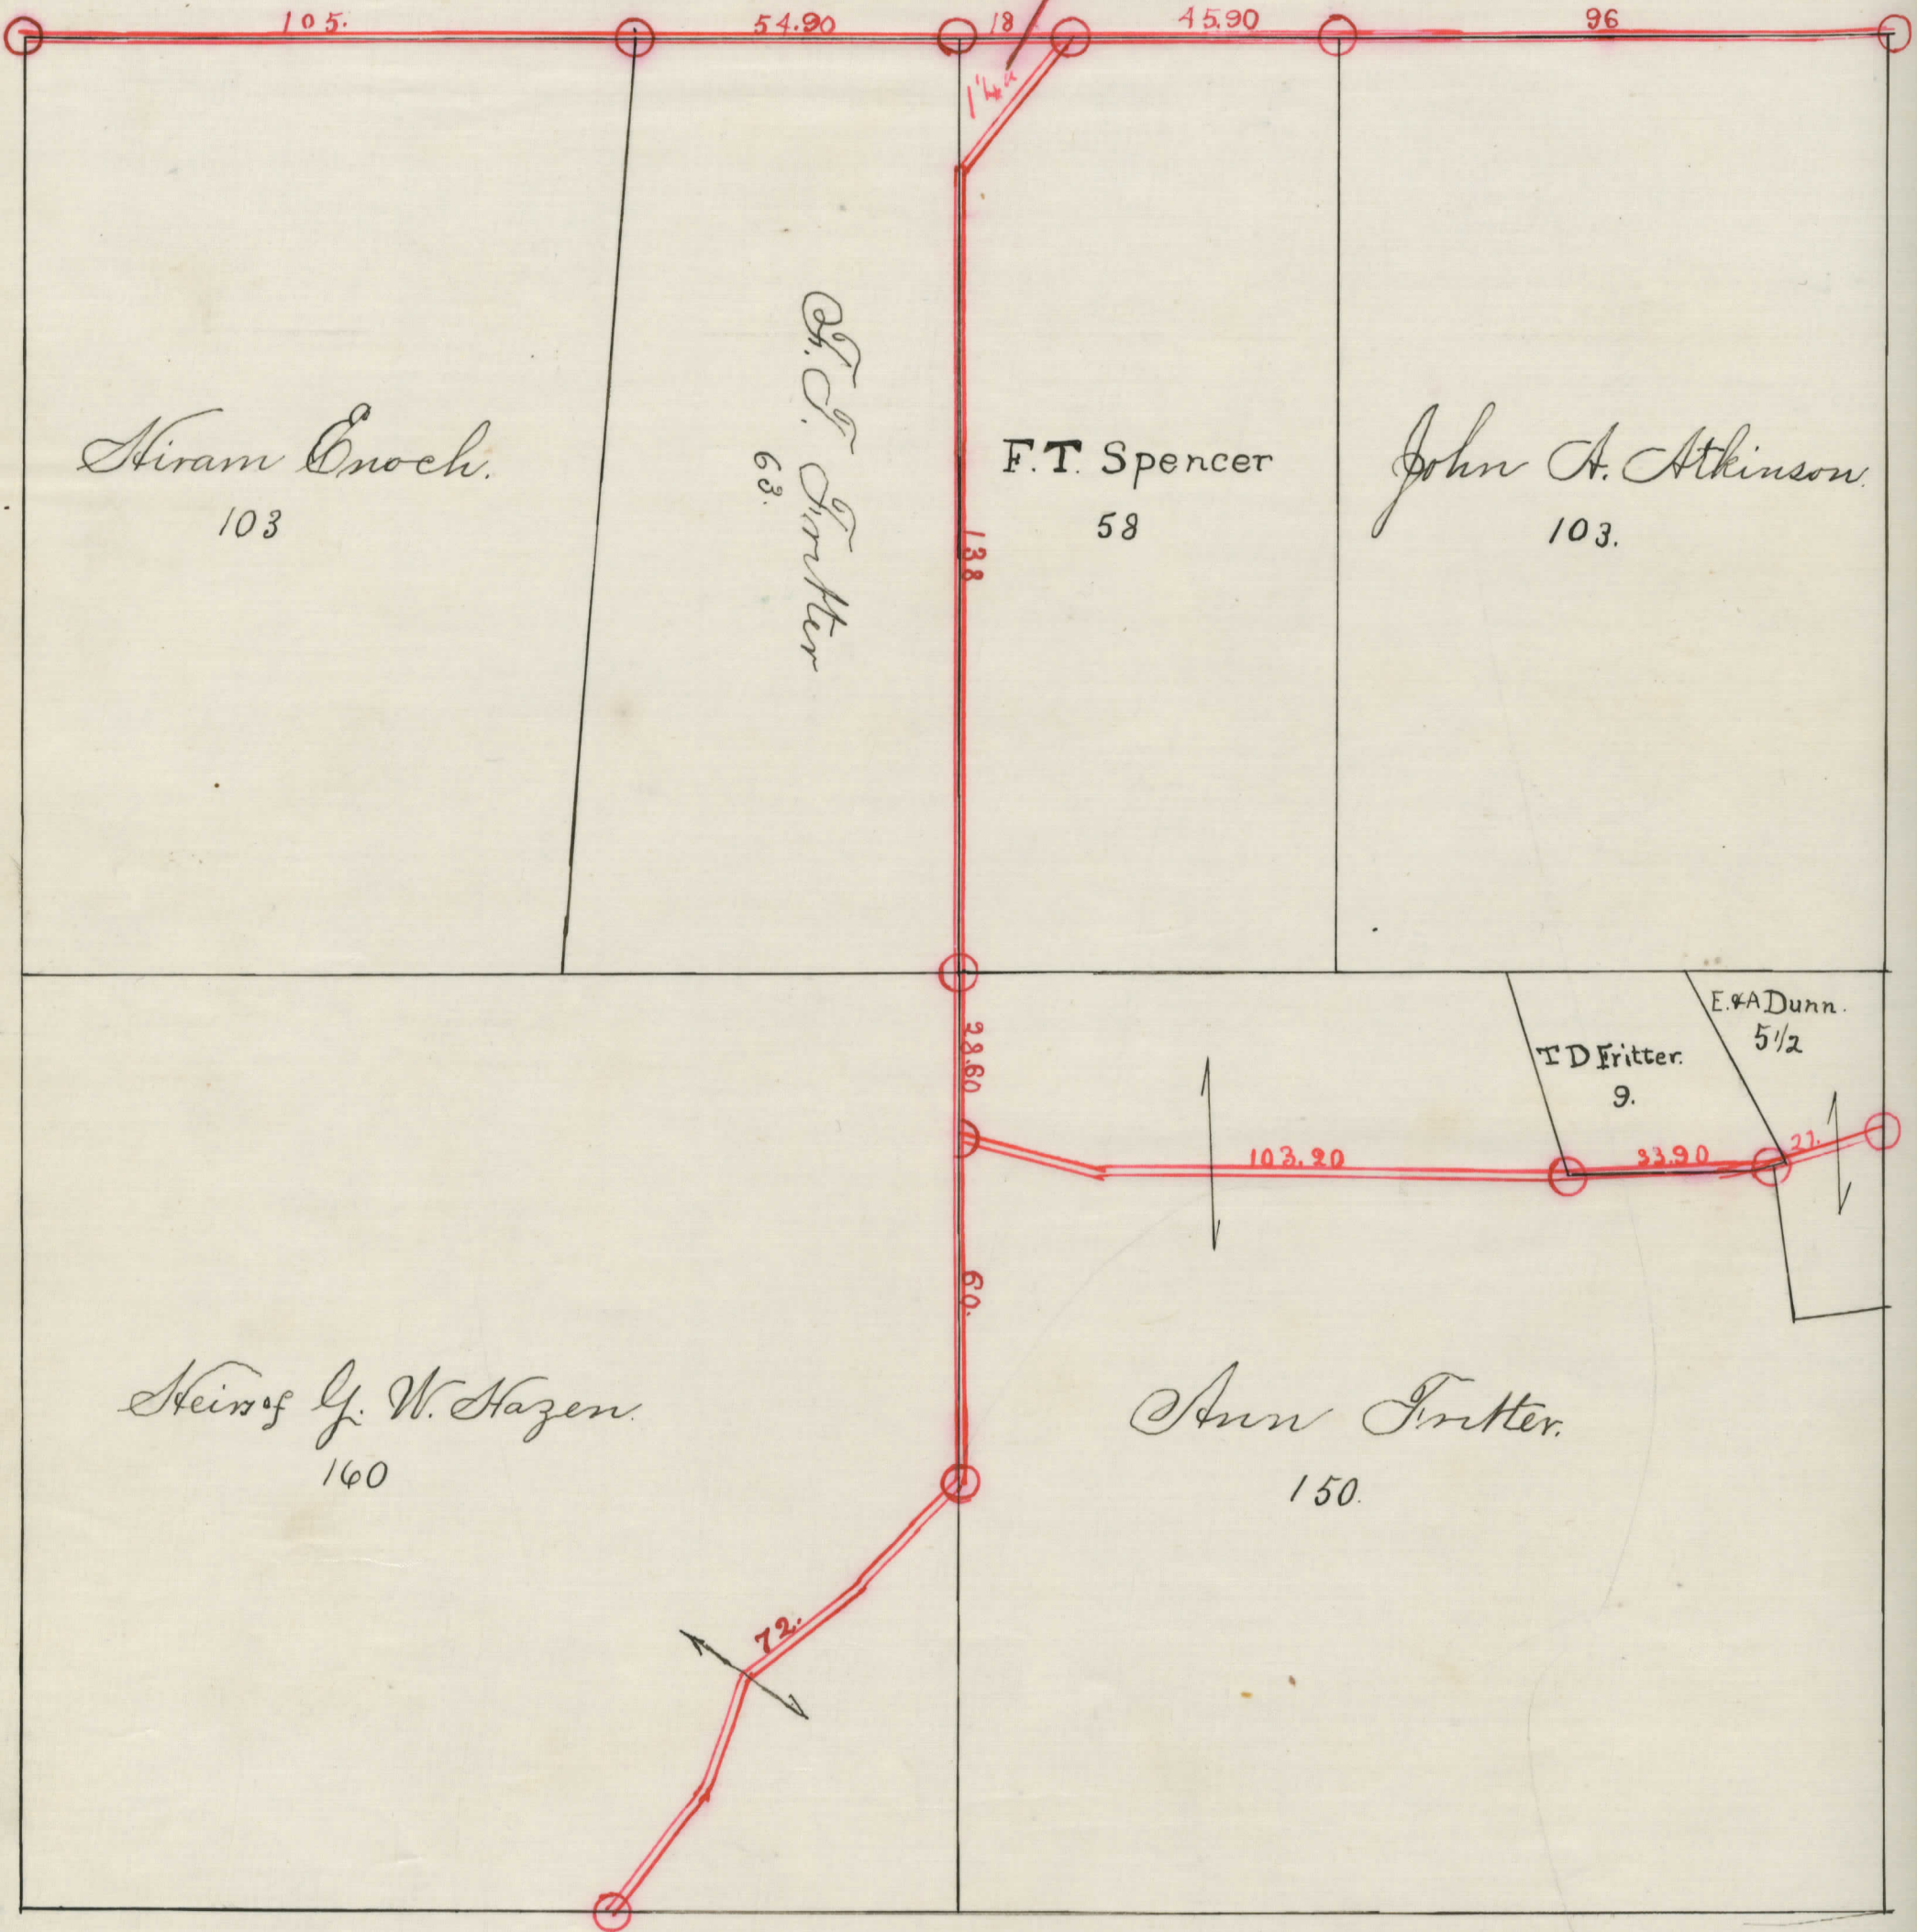 105.
54.90
18
45.90
96
14
Hiram Enoch.
103
T. Fritter
63.
F.T. Spencer
58
John A. Atkinson.
103.
138
28.60
T D Fritter.
9.
E.&A Dunn.
5 1/2
103.20
33.90
21.
60.
Heirs of G. W. Hazen.
160
Ann Fritter.
150.
72.